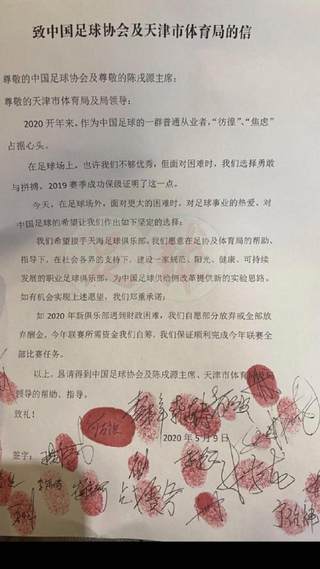 致中国足球协会及天津市体育局的信
尊敬的中国足球协会及尊敬的陈戌源主席：
尊敬的天津市体育局及局领导：
2020 开年来，作为中国足球的一群普通从业者，“彷徨”、“焦虑”
占据心头。
在足球场上，也许我们不够优秀，但面对困难时，我们选择勇敢
与拼搏，2019 赛季成功保级证明了这一点。
今天，在足球场外，面对更大的困难时，对足球事业的热爱、对
中国足球的希望让我们作出如下坚定的选择：
我们希望援手天海足球俱乐部，我们愿意在足协及体育局的帮助、
指导下，在社会各界的支持下，建设一家规范、阳光、健康、可持续
发展的职业足球俱乐部，为中国足球供给侧改革提供新的实验思路。
如有机会实现上述愿望，我们郑重承诺：
如 2020 年新俱乐部遇到财政困难，我们自愿部分放弃或全部放
弃酬金，今年联赛所需资金我们自筹，我们保证顺利完成今年联赛全
部比赛任务。
以上，恳请得到中国足球协会及陈戌源主席、天津市体育局及局
领导的帮助、指导。
致礼！
2020 年 5 月 9 日
签字：